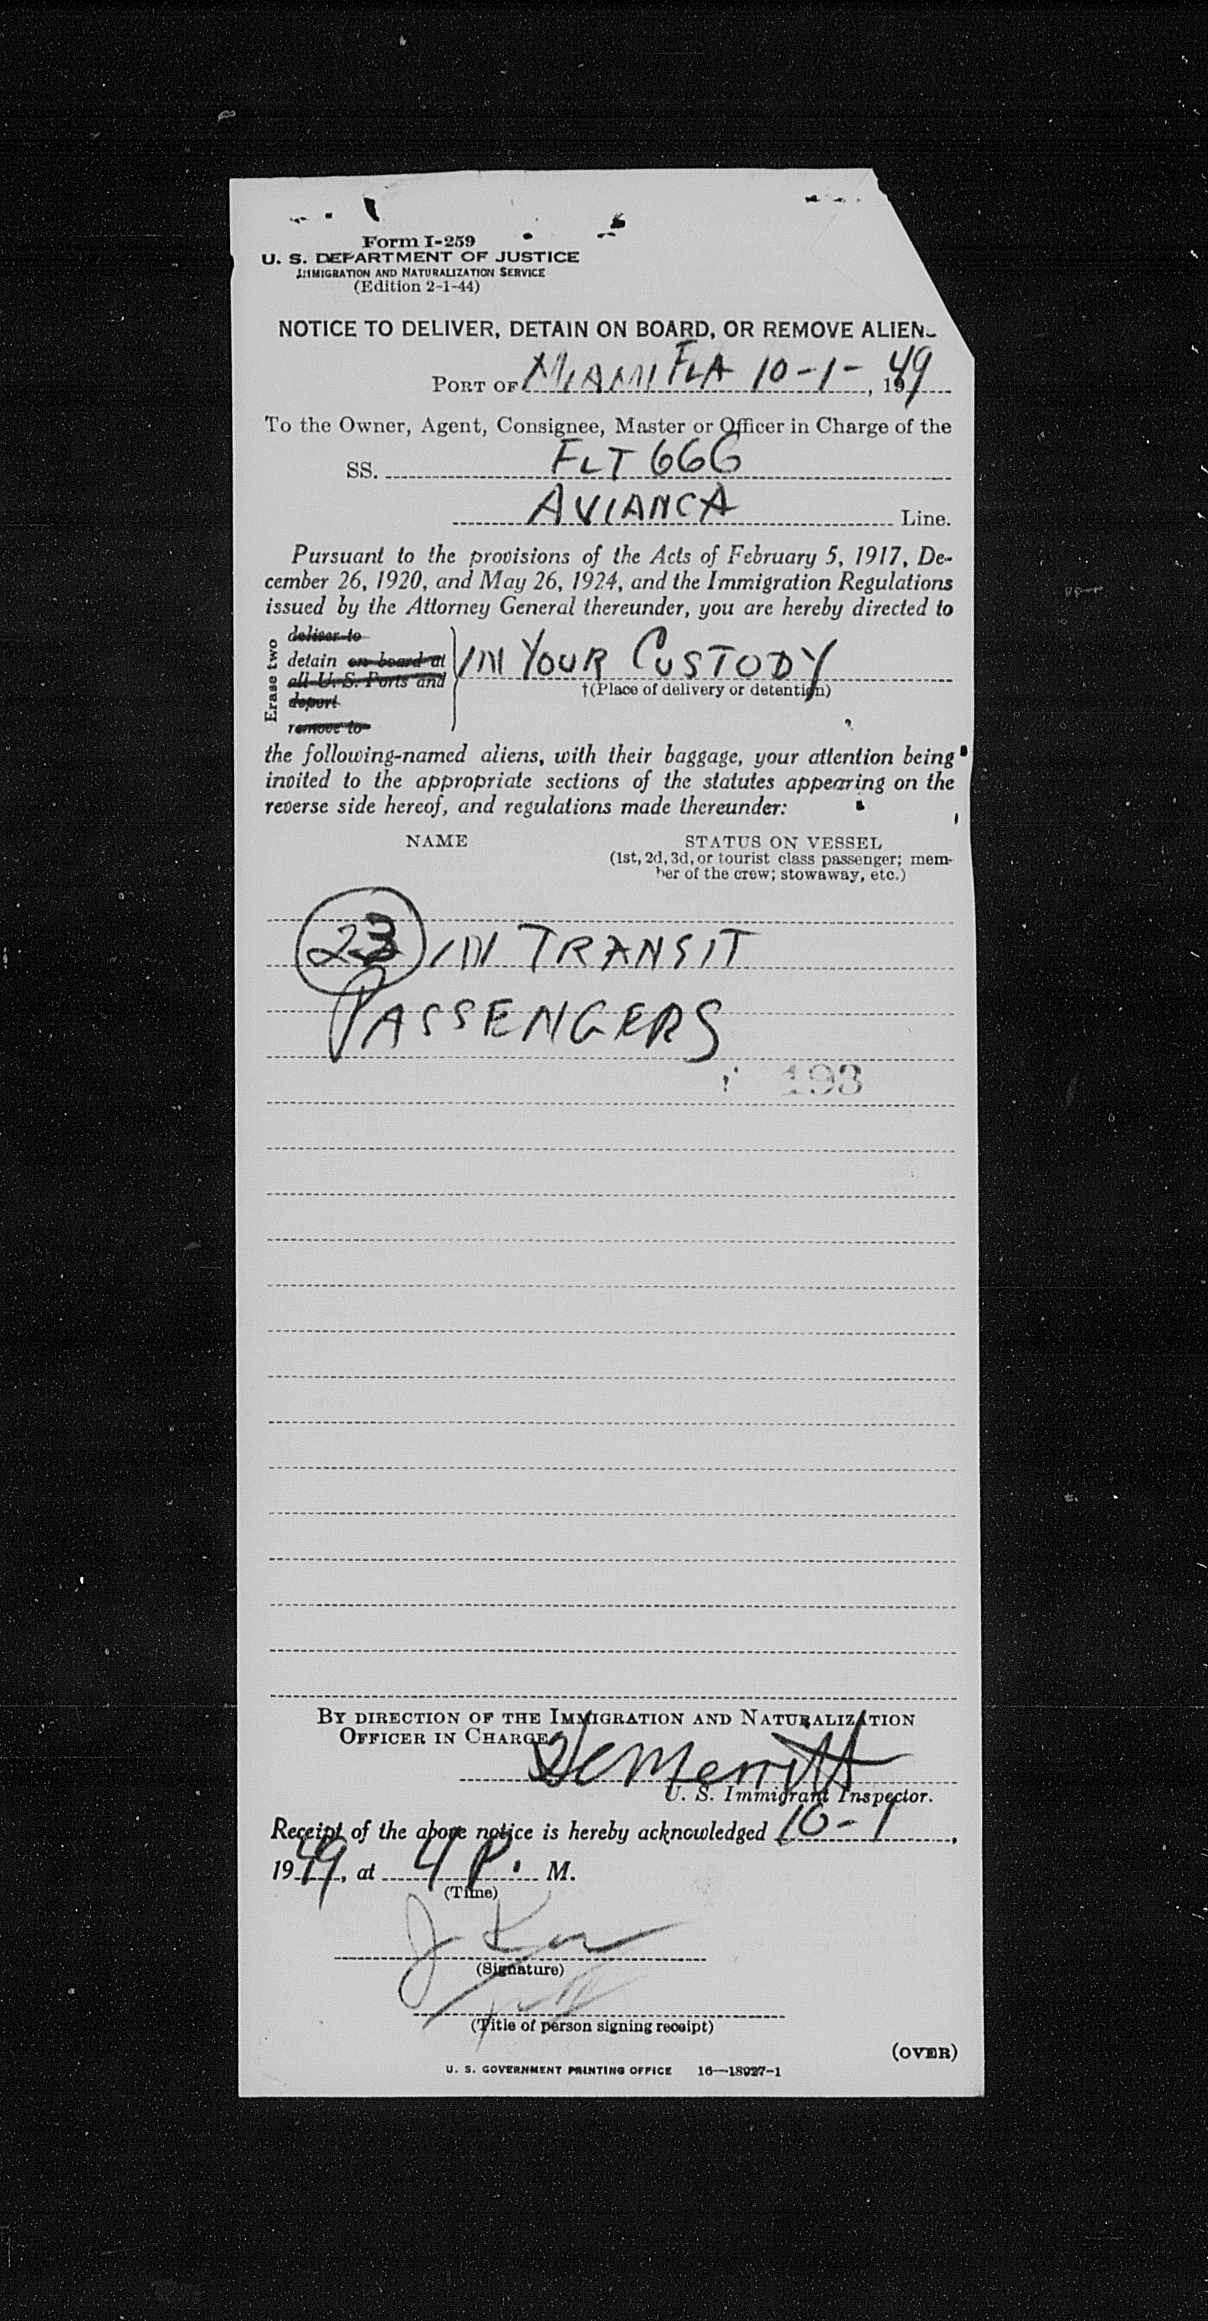 Form I-259
U. S. DEPARTMENT OF JUSTICE
IMMIGRATION AND NATURALIZATION SERVICE
(Edition 2-1-44)
NOTICE TO DELIVER, DETAIN ON BOARD, OR REMOVE ALIENS
PORT OF MIAMI FLA 10-1-, 1949
To the Owner, Agent, Consignee, Master or Officer in Charge of the
SS. FLT 666
AVIANCA Line.
Pursuant to the provisions of the Acts of February 5, 1917, De-
cember 26, 1920, and May 26, 1924, and the Immigration Regulations
issued by the Attorney General thereunder, you are hereby directed to
Erase two
deliver to
detain on board at
all U. S. Ports and
deport
remove to
IN YOUR CUSTODY
†(Place of delivery or detention)
the following-named aliens, with their baggage, your attention being
invited to the appropriate sections of the statutes appearing on the
reverse side hereof, and regulations made thereunder:
NAME STATUS ON VESSEL
(1st, 2d, 3d, or tourist class passenger; mem-
ber of the crew; stowaway, etc.)
23 IN TRANSIT
PASSENGERS
193
BY DIRECTION OF THE IMMIGRATION AND NATURALIZATION
OFFICER IN CHARGE
Merritt
U. S. Immigrant Inspector.
Receipt of the above notice is hereby acknowledged 10-1,
1949, at 4 P. M.
(Time)
(Signature)
(Title of person signing receipt)
(OVER)
U. S. GOVERNMENT PRINTING OFFICE 16—18927-1